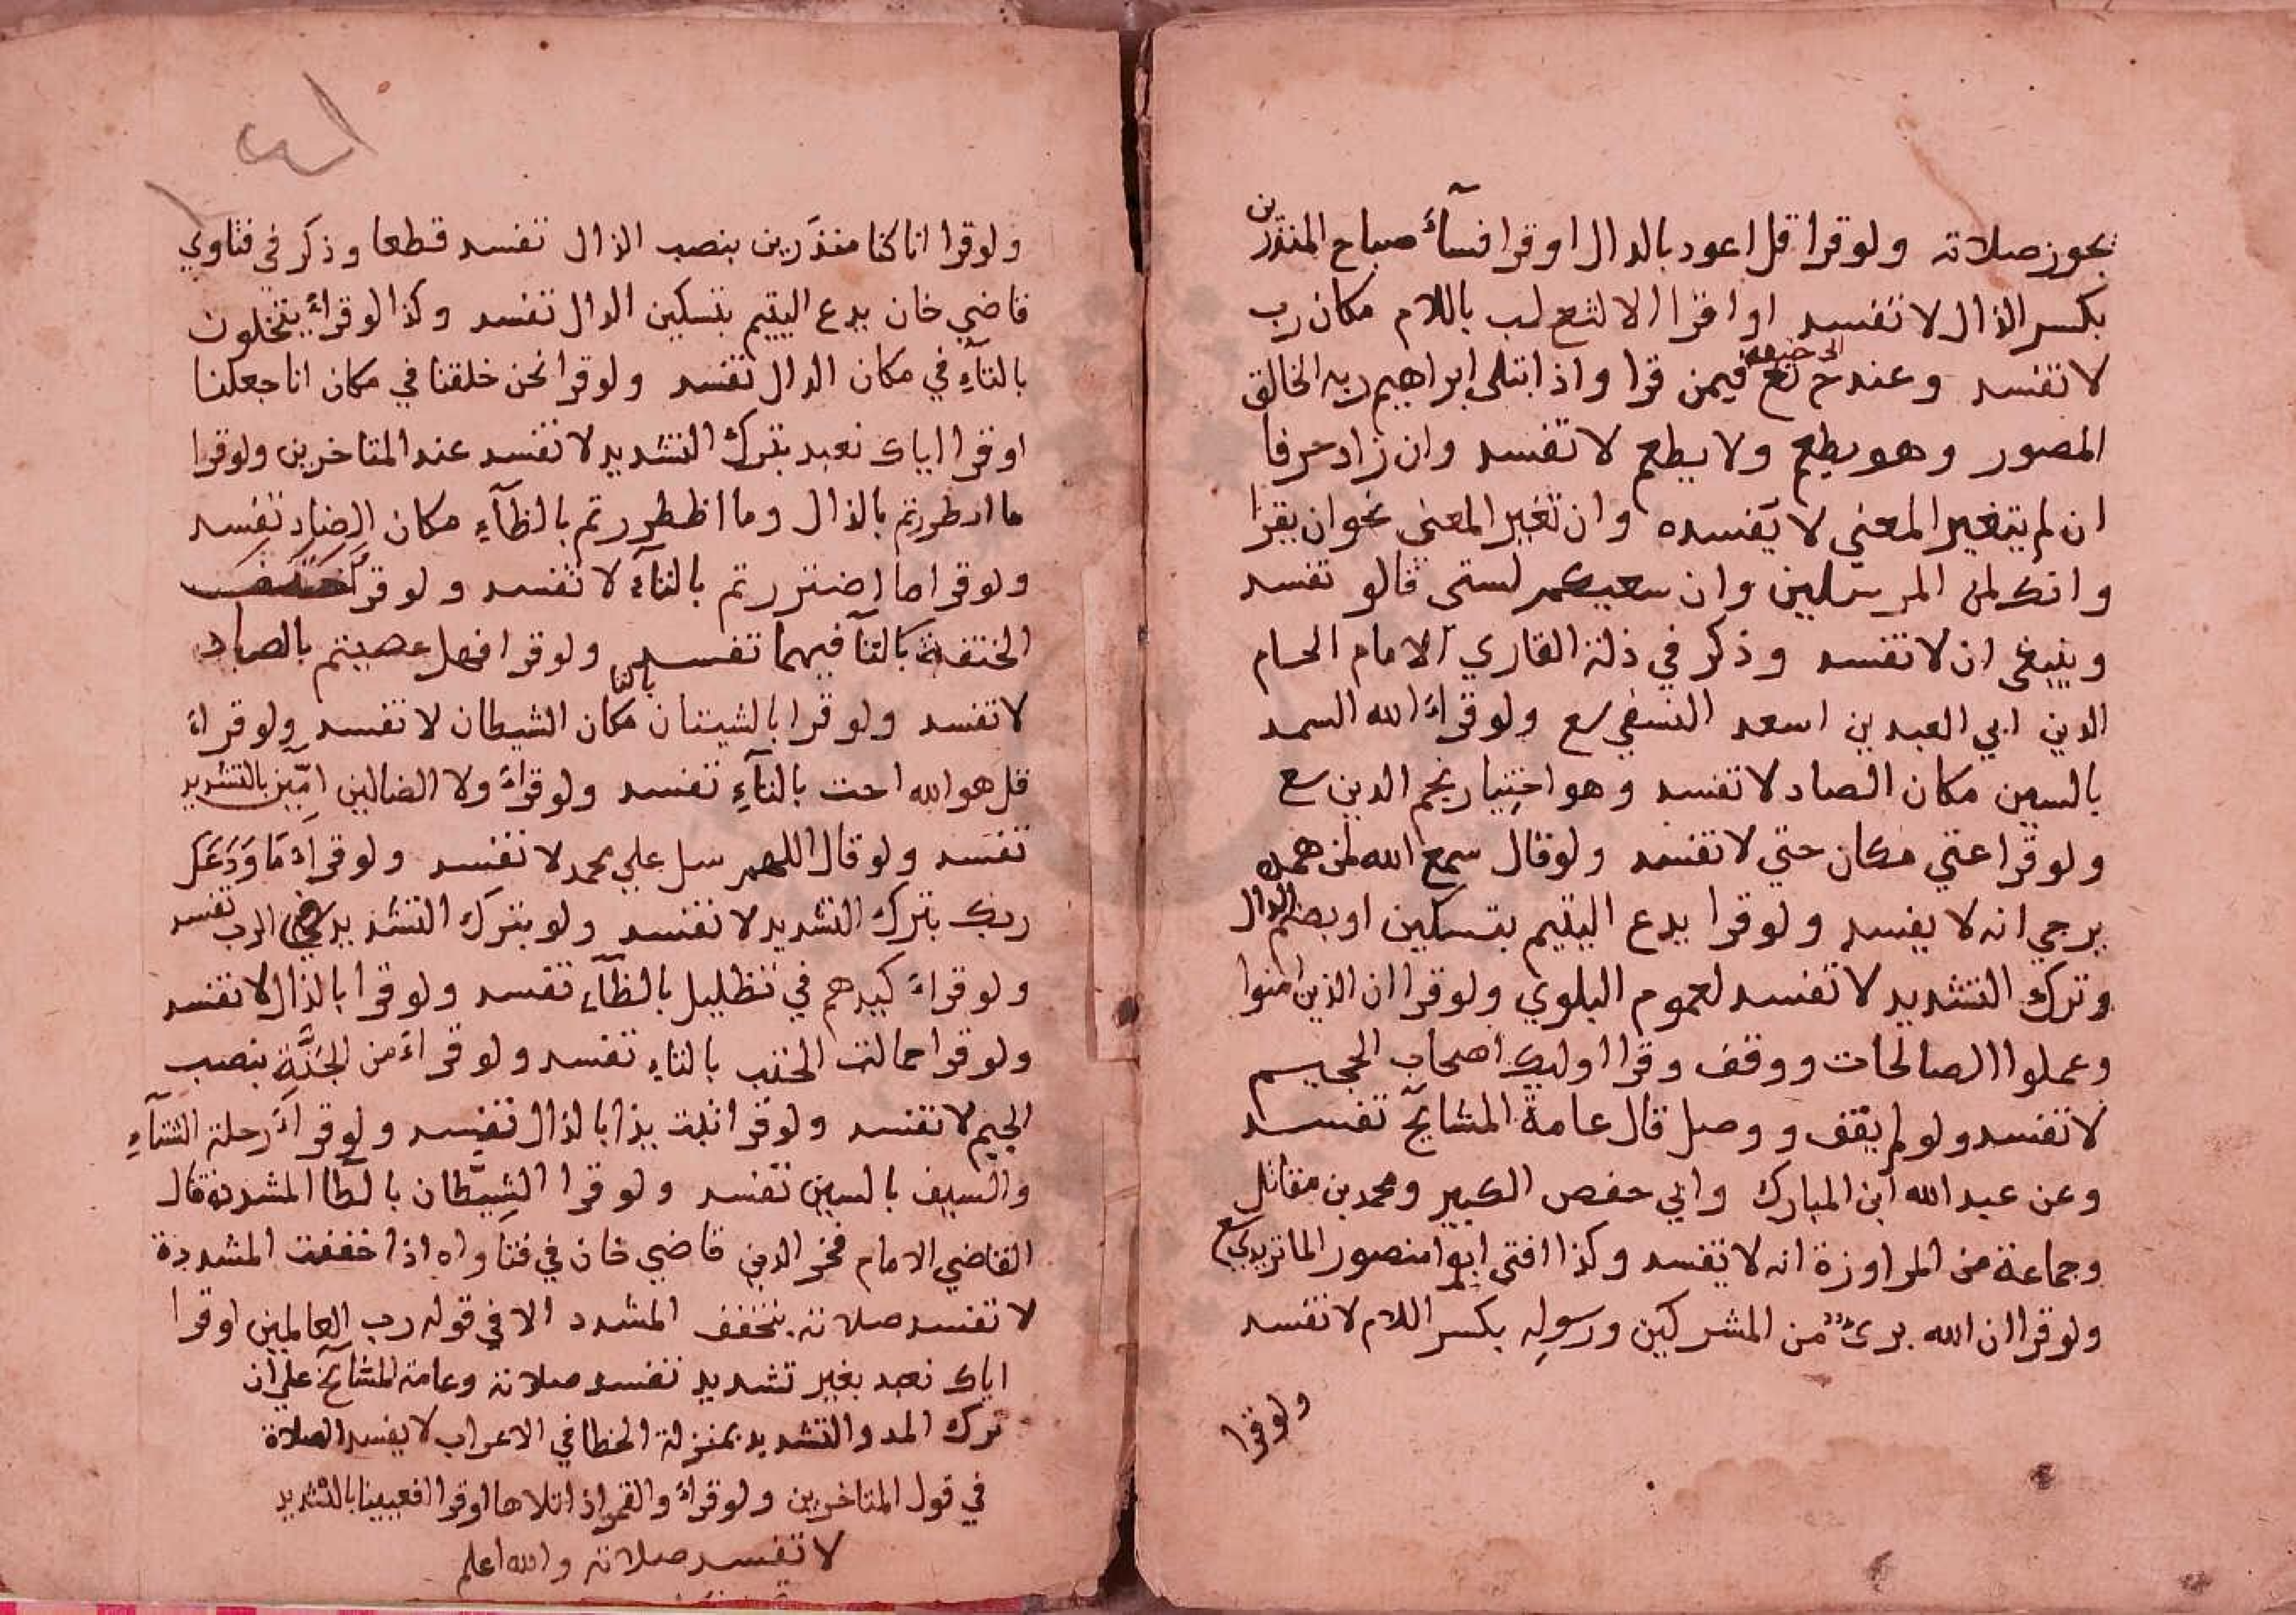 يجوز صلاته ولو قرا قل اعود بالدال او قرا فسآء صباح المنذرين
بكسر الذال لا تفسد او اقرا الالثغ لب باللام مكان رب
لا تفسد وعند ح تع الى حنيفة فيمن قرا واذ ابتلى ابراهيم ربه الخالق
المصور وهو يطعم ولا يطعم لا تفسد وان زاد حرفا
ان لم يتغير المعني لا يفسده وان تغير المعنى نحو ان يقرا
وانك لمن المرسلين وان سعيكم لستى قالو تفسد
وينبغى ان لا تفسد وذكر في ذلة القاري الامام الحسام
الدين ابي العبد بن اسعد النسفي سع ولو قراء الله السمد
بالسين مكان الصاد لا تفسد وهو اختيار نجم الدين سع
ولو قرا عتي مكان حتي لا تفسد ولو قال سمع الله لمن همده
يرجي انه لا يفسد ولو قرا يدع اليتيم بتسكين او بضم الدال
وترك التشديد لا تفسد لعموم البلوي ولو قرا ان الذين امنوا
وعملوا الصالحات ووقف وقرا اوليك اصحاب الجحيم
لا تفسد ولو لم يقف ووصل قال عامة المشايخ تفسد
وعن عبد الله ابن المبارك وابي حفص الكبير ومحمد بن مقاتل
وجماعة من المراوزة انه لا يفسد وكذا افتى ابوا منصور الماتريدي سع
ولو قرا ان الله برئ من المشركين ورسوله بكسر اللام لا تفسد
ولو قرا
ولو قرا انا كنا منذرين بنصب الذال تفسد قطعا وذكر في فتاوي
قاضي خان يدع اليتيم بتسكين الدال تفسد وكذا لو قراء يتخلون
بالتآء في مكان الدال تفسد ولو قرا نحن خلقنا في مكان انا جعلنا
او قرا اياك نعبد بترك التشديد لا تفسد عند المتاخرين ولو قرا
ما اذطررتم بالذال وما اظطررتم بالظآء مكان الضاد تفسد
ولو قرا ما اضتررتم بالتآء لا تفسد ولو قراء
الختفة بالتآ فيهما تفسد ولو قرا فهل عصيتم بالصاد
لا تفسد ولو قرا بالشيتان بالتا مكان الشيطان لا تفسد ولو قراء
قل هو الله احت بالتآء تفسد ولو قراء ولا الضالين امّين بالتشديد
تفسد ولو قال اللهم سل علي محمد لا تفسد ولو قراء مَا وَدَعَكَ
ربك بترك التشديد لا تفسد ولو بترك التشديد في الرب تفسد
ولو قراء كيدهم في تظليل بالظآء تفسد ولو قرا بالذال لا تفسد
ولو قرا حمالت الحتب بالتاء تفسد ولو قراء من الجَنَّةِ بنصب
الجيم لا تفسد ولو قرا تبت يذا بالذال تفسد ولو قراء رحلة الشتآء
والسيف بالسين تفسد ولو قرا الشيّطان بالطا المشددة قال
القاضي الامام فخر الدين قاضي خان في فتاواه اذا خففت المشددة
لا تفسد صلاته بتخفف المشدد الا في قوله رب العالمين او قرا
اياك نعبد بغير تشديد تفسد صلاته وعامة المشايخ علي ان
ترك المد والتشديد بمنزلة الخطا في الاعراب لا يفسد الصلاة
في قول المتاخرين ولو قراء والقمر اذا تلاها او قرا افعيينا بالتشديد
لا تفسد صلاته والله اعلم